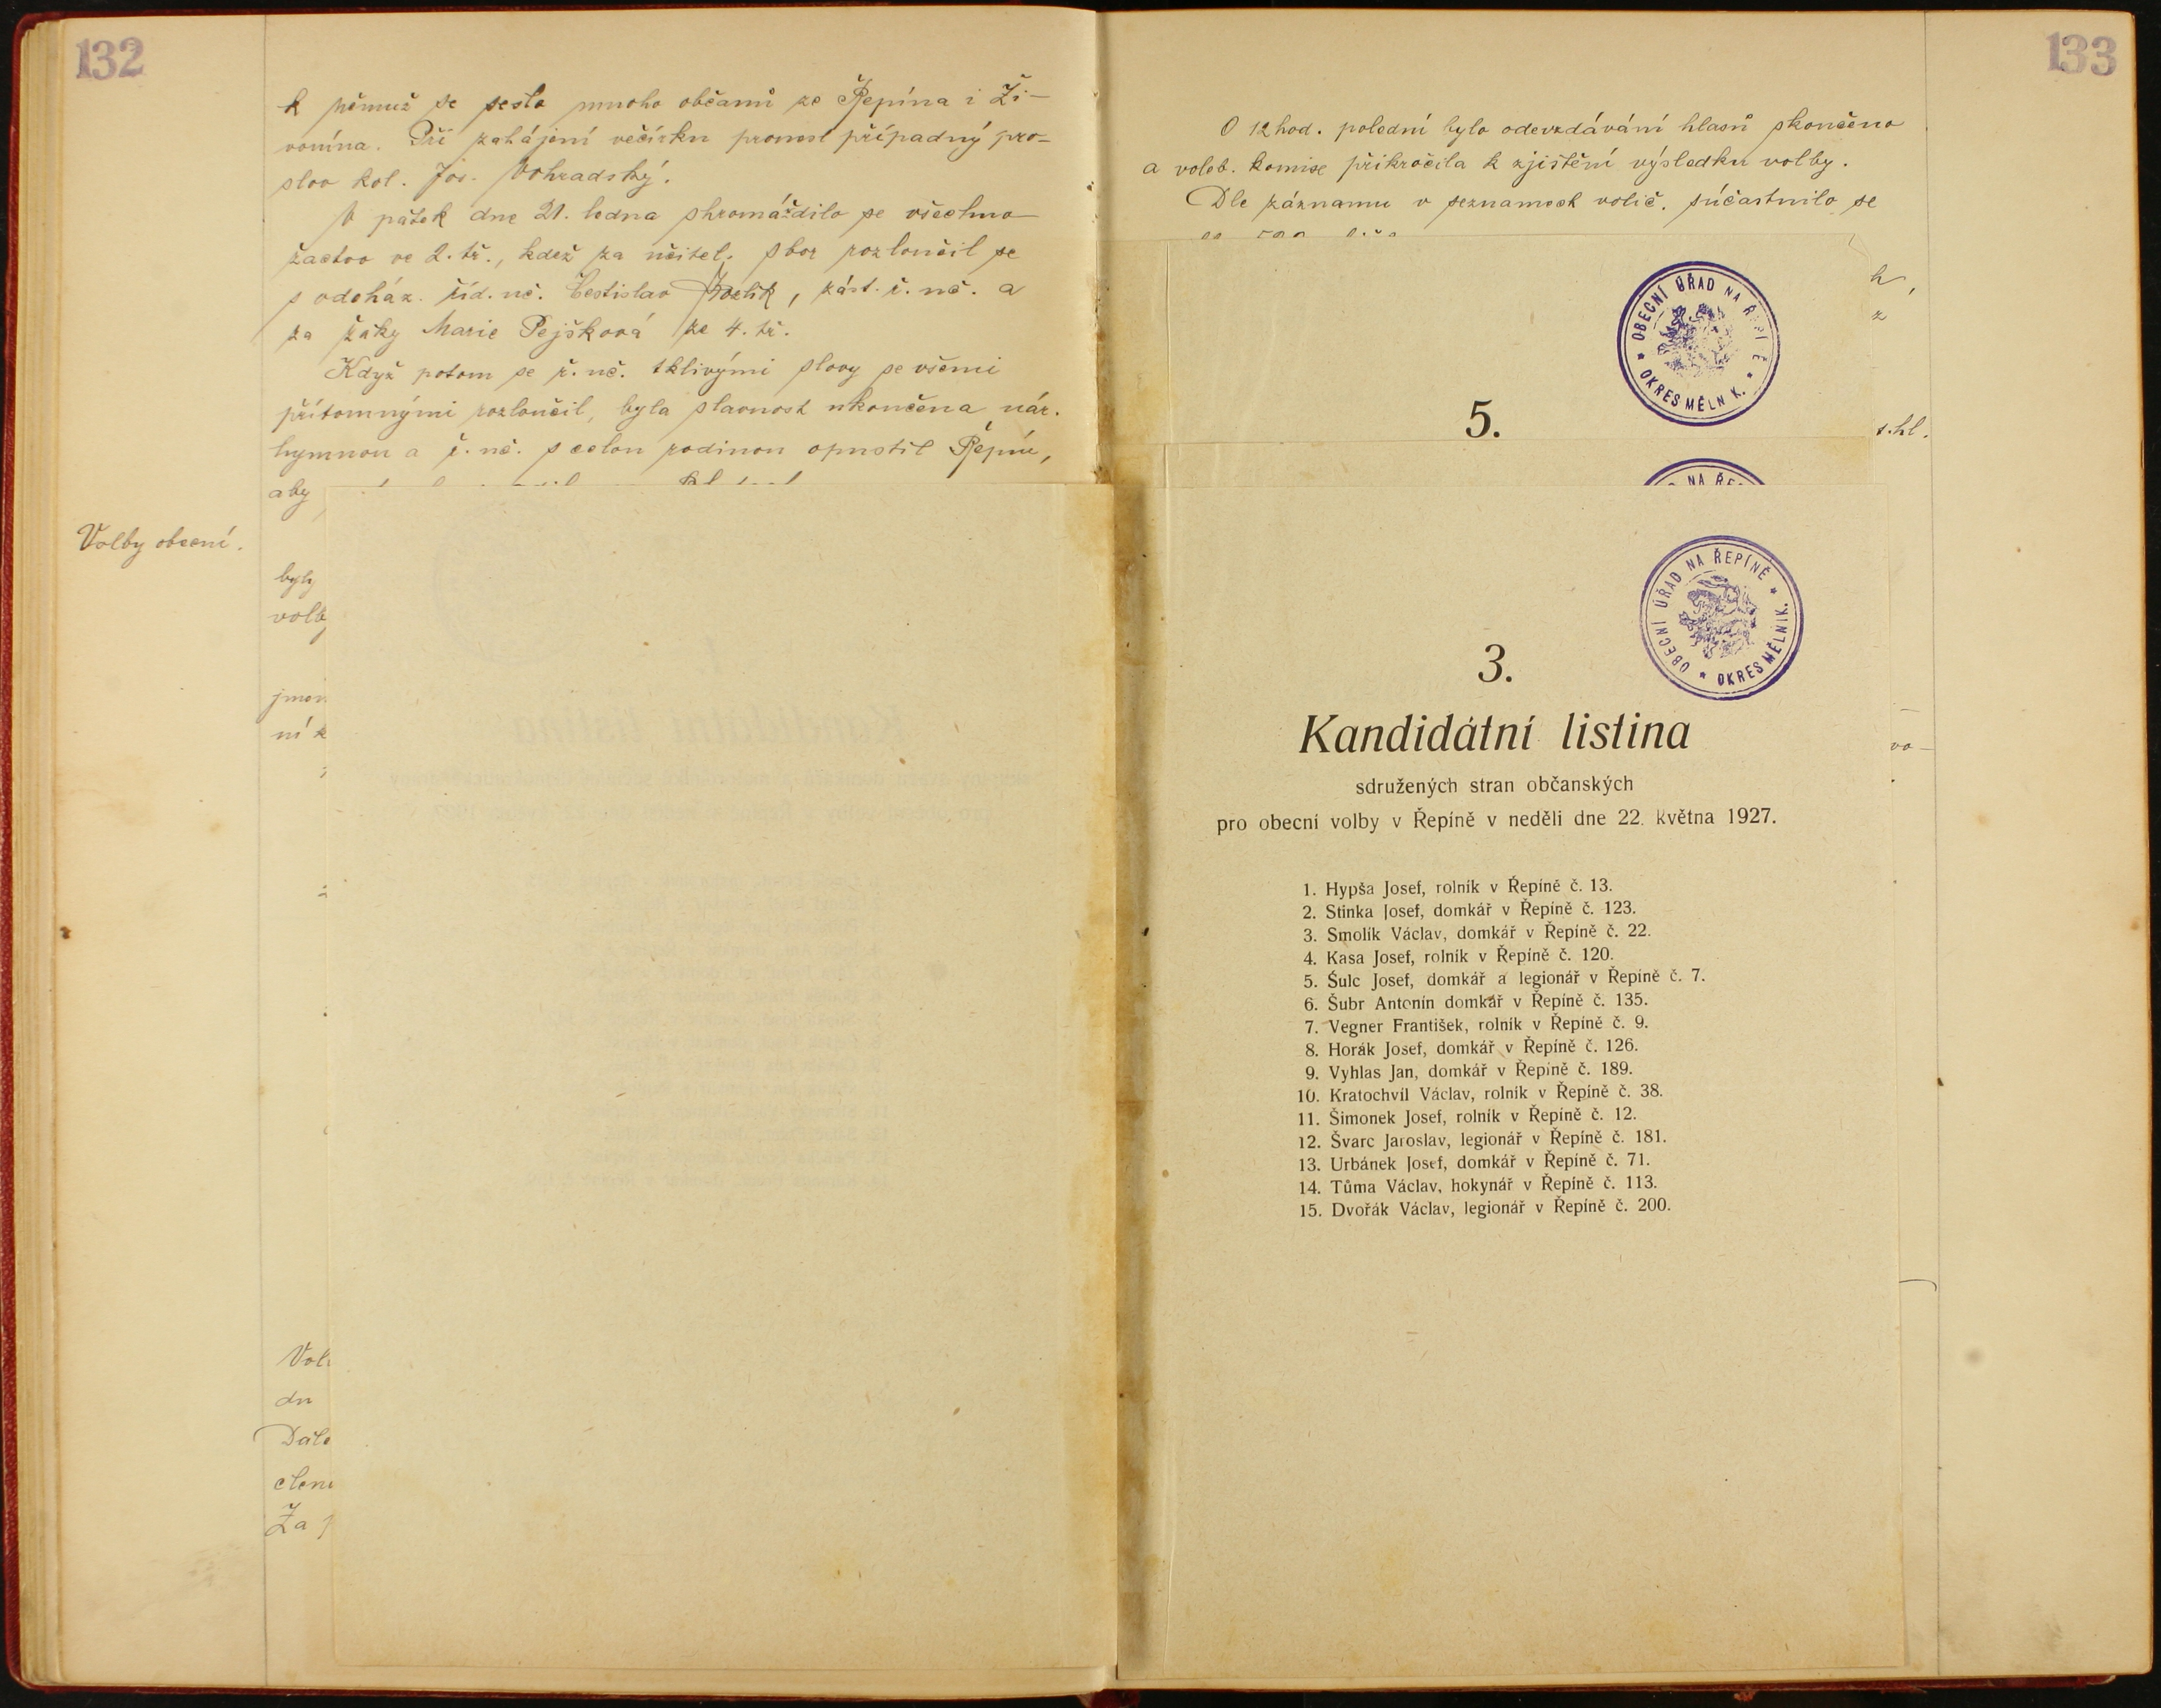 132
k němuž se sešlo mnoho občanů ze Řepína i Ži-
vonína. Při zahájení večírku pronesl případný pro-
slov kol. Jos. Vohradský.
V pátek dne 21. ledna shromáždilo se všechno
žactvo ve 2. tř., kdež za učitel. sbor rozloučil se
s odcház. říd. uč. Čestislav, zást. ř. uč. a
za žáky Marie Pejšková ze 4. tř.
Když potom se ř. uč. tklivými slovy se všemi
přítomnými rozloučil, byla slavnost ukončena nár.
hymnou a ř. uč. s celou rodinou opustil Řepín,
aby
Volby obecní.
byly
volb
jmen
ní k
Vol
dn
Dále
členi
Za
133
O 12 hod. polední bylo odevzdávání hlasů skončeno
a voleb. komise přikročila k zjištění výsledku volby.
Dle záznamu v seznamech volič. súčastnilo se
h,
z
OBECNÍ ÚŘAD NA ŘEPÍ Ě
OKRES MĚLN K.
5.
s.hl.
NA ŘE
OBECNÍ ÚŘAD NA ŘEPÍNĚ
OKRES MĚLNIK.
3.
Kandidátní listina
vo-
sdružených stran občanských
pro obecní volby v Řepíně v neděli dne 22. května 1927.
1. Hypša Josef, rolník v Řepíně č. 13.
2. Stinka Josef, domkář v Řepíně č. 123.
3. Smolík Václav, domkář v Řepíně č. 22.
4. Kasa Josef, rolník v Řepíně č. 120.
5. Šulc Josef, domkář a legionář v Řepíně č. 7.
6. Šubr Antonín domkář v Řepíně č. 135.
7. Vegner František, rolník v Řepíně č. 9.
8. Horák Josef, domkář v Řepíně č. 126.
9. Vyhlas Jan, domkář v Řepíně č. 189.
10. Kratochvíl Václav, rolník v Řepíně č. 38.
11. Šimonek Josef, rolník v Řepíně č. 12.
12. Švarc Jaroslav, legionář v Řepíně č. 181.
13. Urbánek Josef, domkář v Řepíně č. 71.
14. Tůma Václav, hokynář v Řepíně č. 113.
15. Dvořák Václav, legionář v Řepíně č. 200.